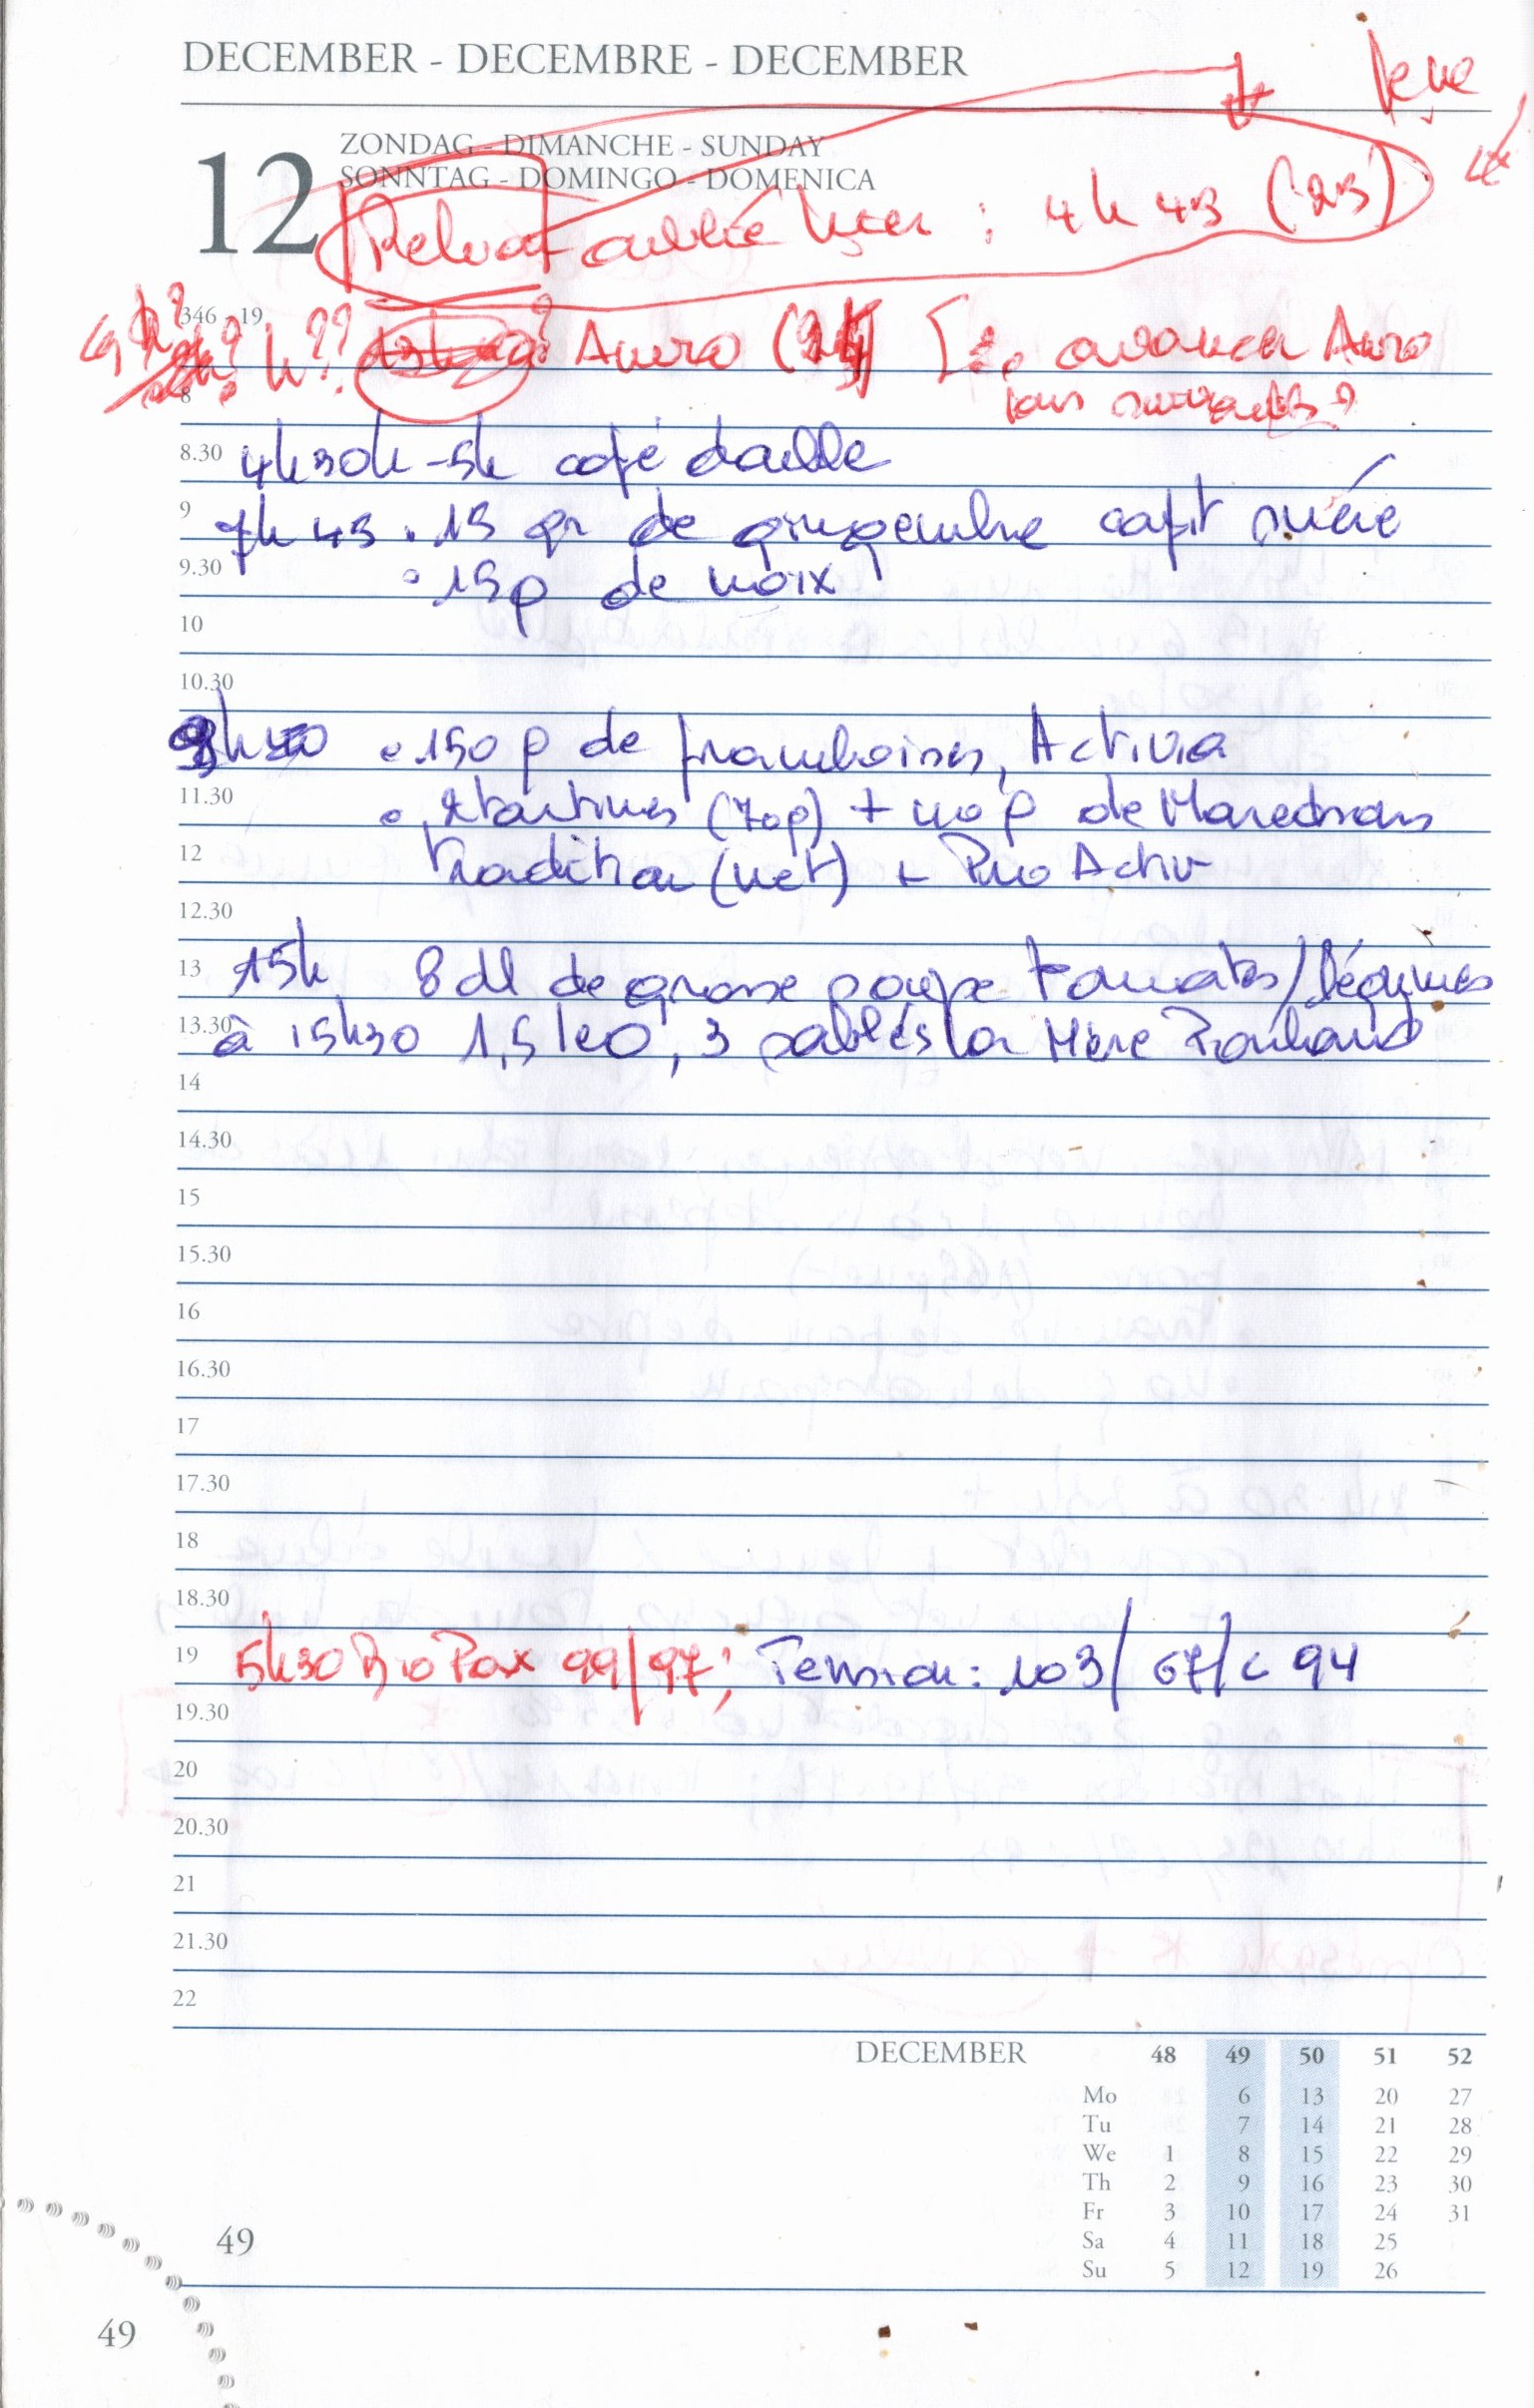 DECEMBER - DECEMBRE - DECEMBER
12
ZONDAG - DIMANCHE - SUNDAY
SONNTAG - DOMINGO - DOMENICA
oublié hier : 4h 45 (25)
346 - 19
h?? Auro avancer Auro
8
8.30 4h30h-5h café double
9 7h 45 . 15 gr de gingembre confit sucré
9.30 15g de noix
10
10.30
150 g de framboises, Activia
11.30 2 tartines (70g) + 40 g de Maredsous
12 Tradition (net) + Pro Activ
12.30
13 15h 8 dl de grosse soupe tomates/légumes
13.30 à 15h30 1,5 leo, 3 sablés la Mère Poulard
14
14.30
15
15.30
16
16.30
17
17.30
18
18.30
19 5h30 Bio Pox 99/97; Tension: 103/67/c 94
19.30
20
20.30
21
21.30
22
DECEMBER 48 49 50 51 52
Mo 6 13 20 27
Tu 7 14 21 28
We 1 8 15 22 29
Th 2 9 16 23 30
Fr 3 10 17 24 31
Sa 4 11 18 25
Su 5 12 19 26
49
49